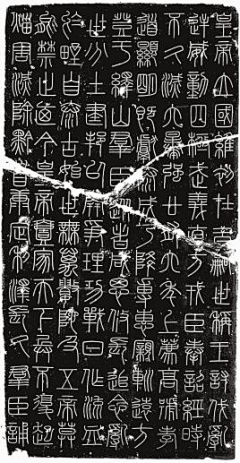 皇帝立國維初在昔嗣世稱王討伐亂
逆威動四極武義直方戎臣奉詔經時
不久滅六暴強廿有六年上薦高號孝
道顯明既獻泰成乃降專惠寴巡遠方
登于繹山群臣從者咸思攸長追念亂
世分土建邦以開爭理功戰日作流血
於野自泰古始世無萬數陀及五帝莫
能禁止乃今皇帝壹家天下兵不復起
災害滅除黔首康定利澤長久群臣誦